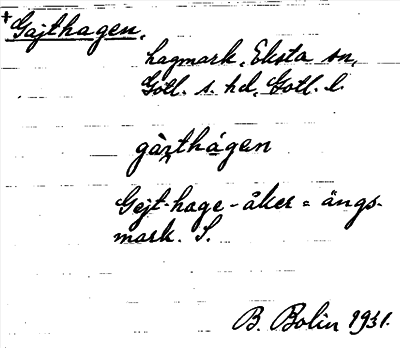 +Gajthagen.
hagmark, Eksta sn,
Gotl. s. hd, Gotl. l.
Gejt-hage-åker = ängs-
mark. S.
B. Bolin 1931.